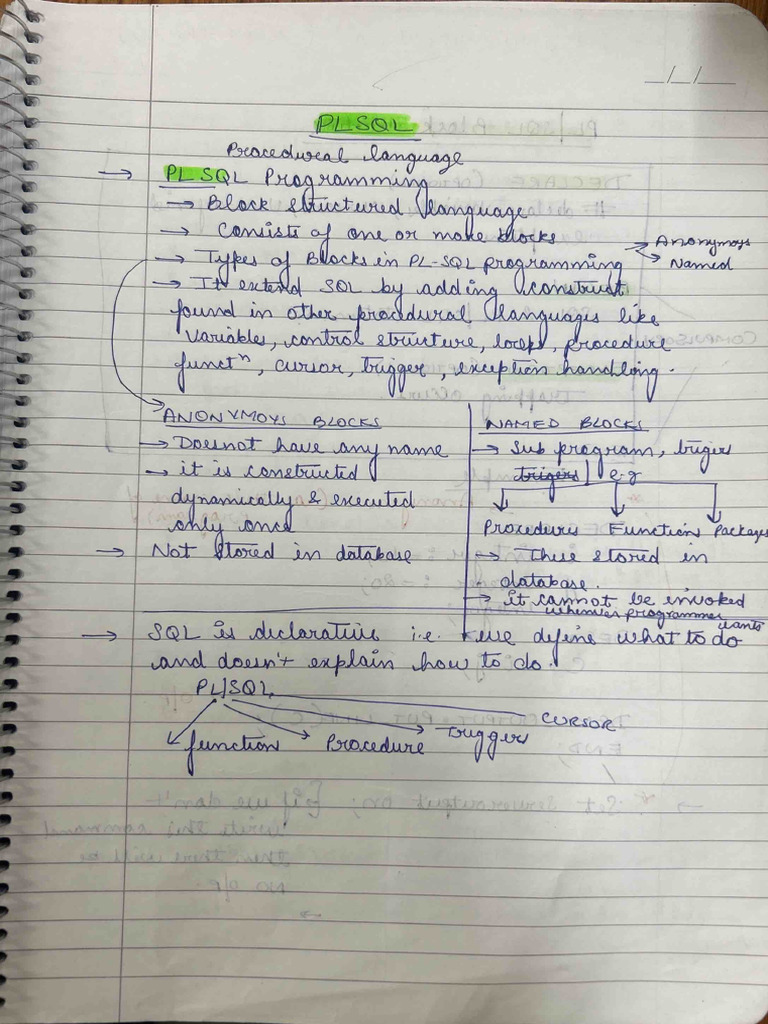 _/_/__
PLSQL
Procedural language
→ PL SQL Programming
→ Block structured language
→ Consists of one or more blocks
→ Types of Blocks in PL-SQL programming → Anonymoys
→ Named
→ It extend SQL by adding construct
found in other procedural languages like
Variables, control structure, loops, procedure
functⁿ, cursor, trigger, exception handling.
ANONYMOYS BLOCKS
→ Doesnot have any name
→ it is constructed
dynamically & executed
only once
→ Not stored in database
NAMED BLOCKS
→ Sub program, triger
trigers e.g
Procedures Function Packages
→ these stored in
database.
→ it cannot be invoked
whenever programmer wants
→ SQL is declarative i.e. we define what to do
and doesn't explain how to do.
PL/SQL
function Procedure Trigger CURSOR